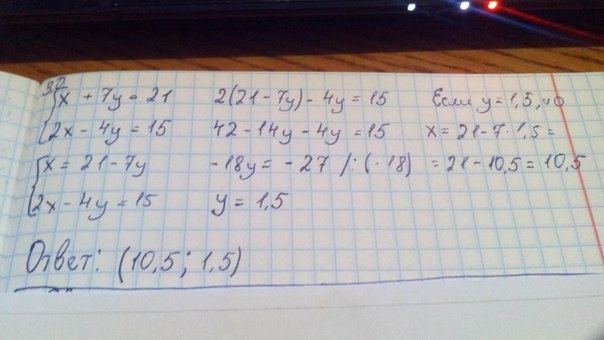 3)
{ x + 7y = 21
2x - 4y = 15
{ x = 21 - 7y
2x - 4y = 15
2(21 - 7y) - 4y = 15
42 - 14y - 4y = 15
-18y = -27 /:(-18)
y = 1,5
Если y = 1,5, то
x = 21 - 7 · 1,5 =
= 21 - 10,5 = 10,5
Ответ: (10,5; 1,5)